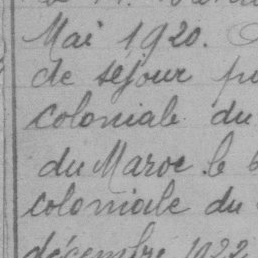 Mai 1920.
de séjour
coloniale du
du Maroc le
coloniale du
décembre 1922